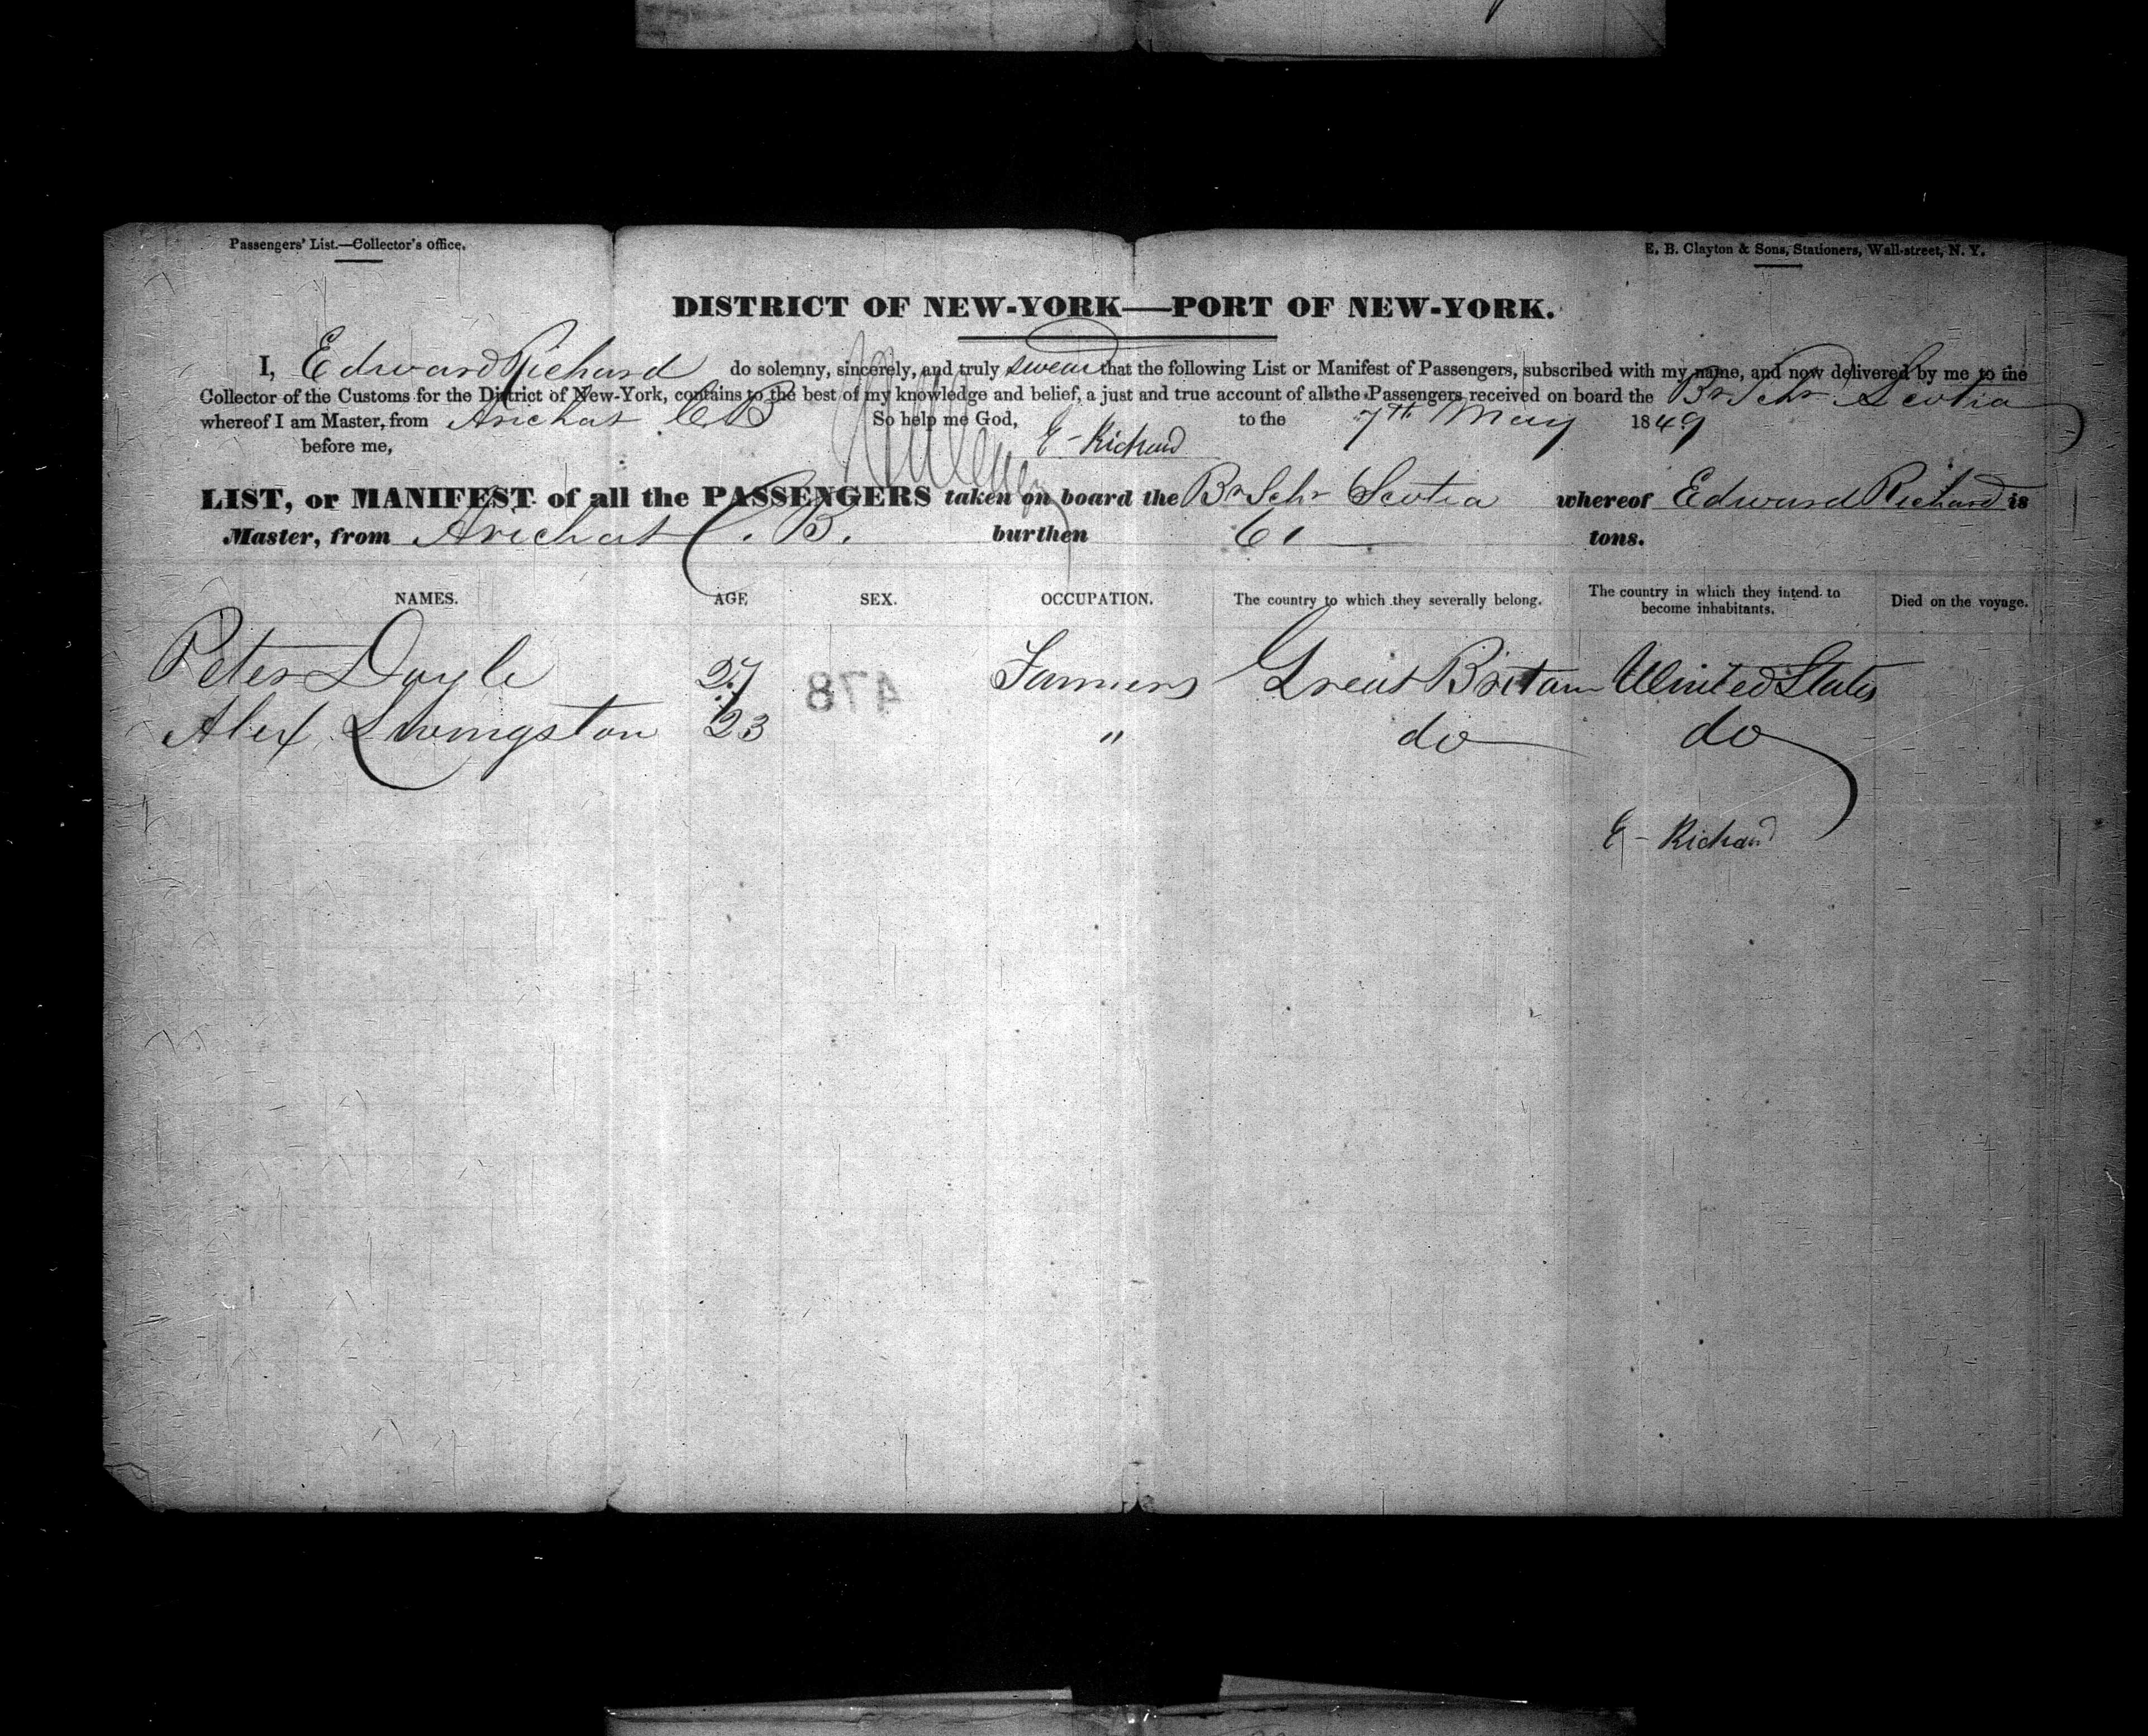 Passengers' List.—Collector's Office.
E. B. Clayton & Sons, Stationers, Wall-street, N. Y.
DISTRICT OF NEW-YORK—PORT OF NEW-YORK.
I, Edward Richard do solemny, sincerely, and truly swear that the following List or Manifest of Passengers, subscribed with my name, and now delivered by me to the
Collector of the Customs for the District of New-York, contains to the best of my knowledge and belief, a just and true account of all the Passengers received on board the Br Schr Scotia
whereof I am Master, from Arichat C B So help me God, to the 7th May 1849
before me, E - Richard
LIST, or MANIFEST of all the PASSENGERS taken on board the Br Schr Scotia whereof Edward Richard is
Master, from Arichat C. B. burthen 61 tons.
NAMES. AGE SEX. OCCUPATION. The country to which they severally belong. The country in which they intend to become inhabitants. Died on the voyage.
Peter Doyle 27 Farmers Great Britain United States
Alex Livingston 23 " do do
478
E - Richard